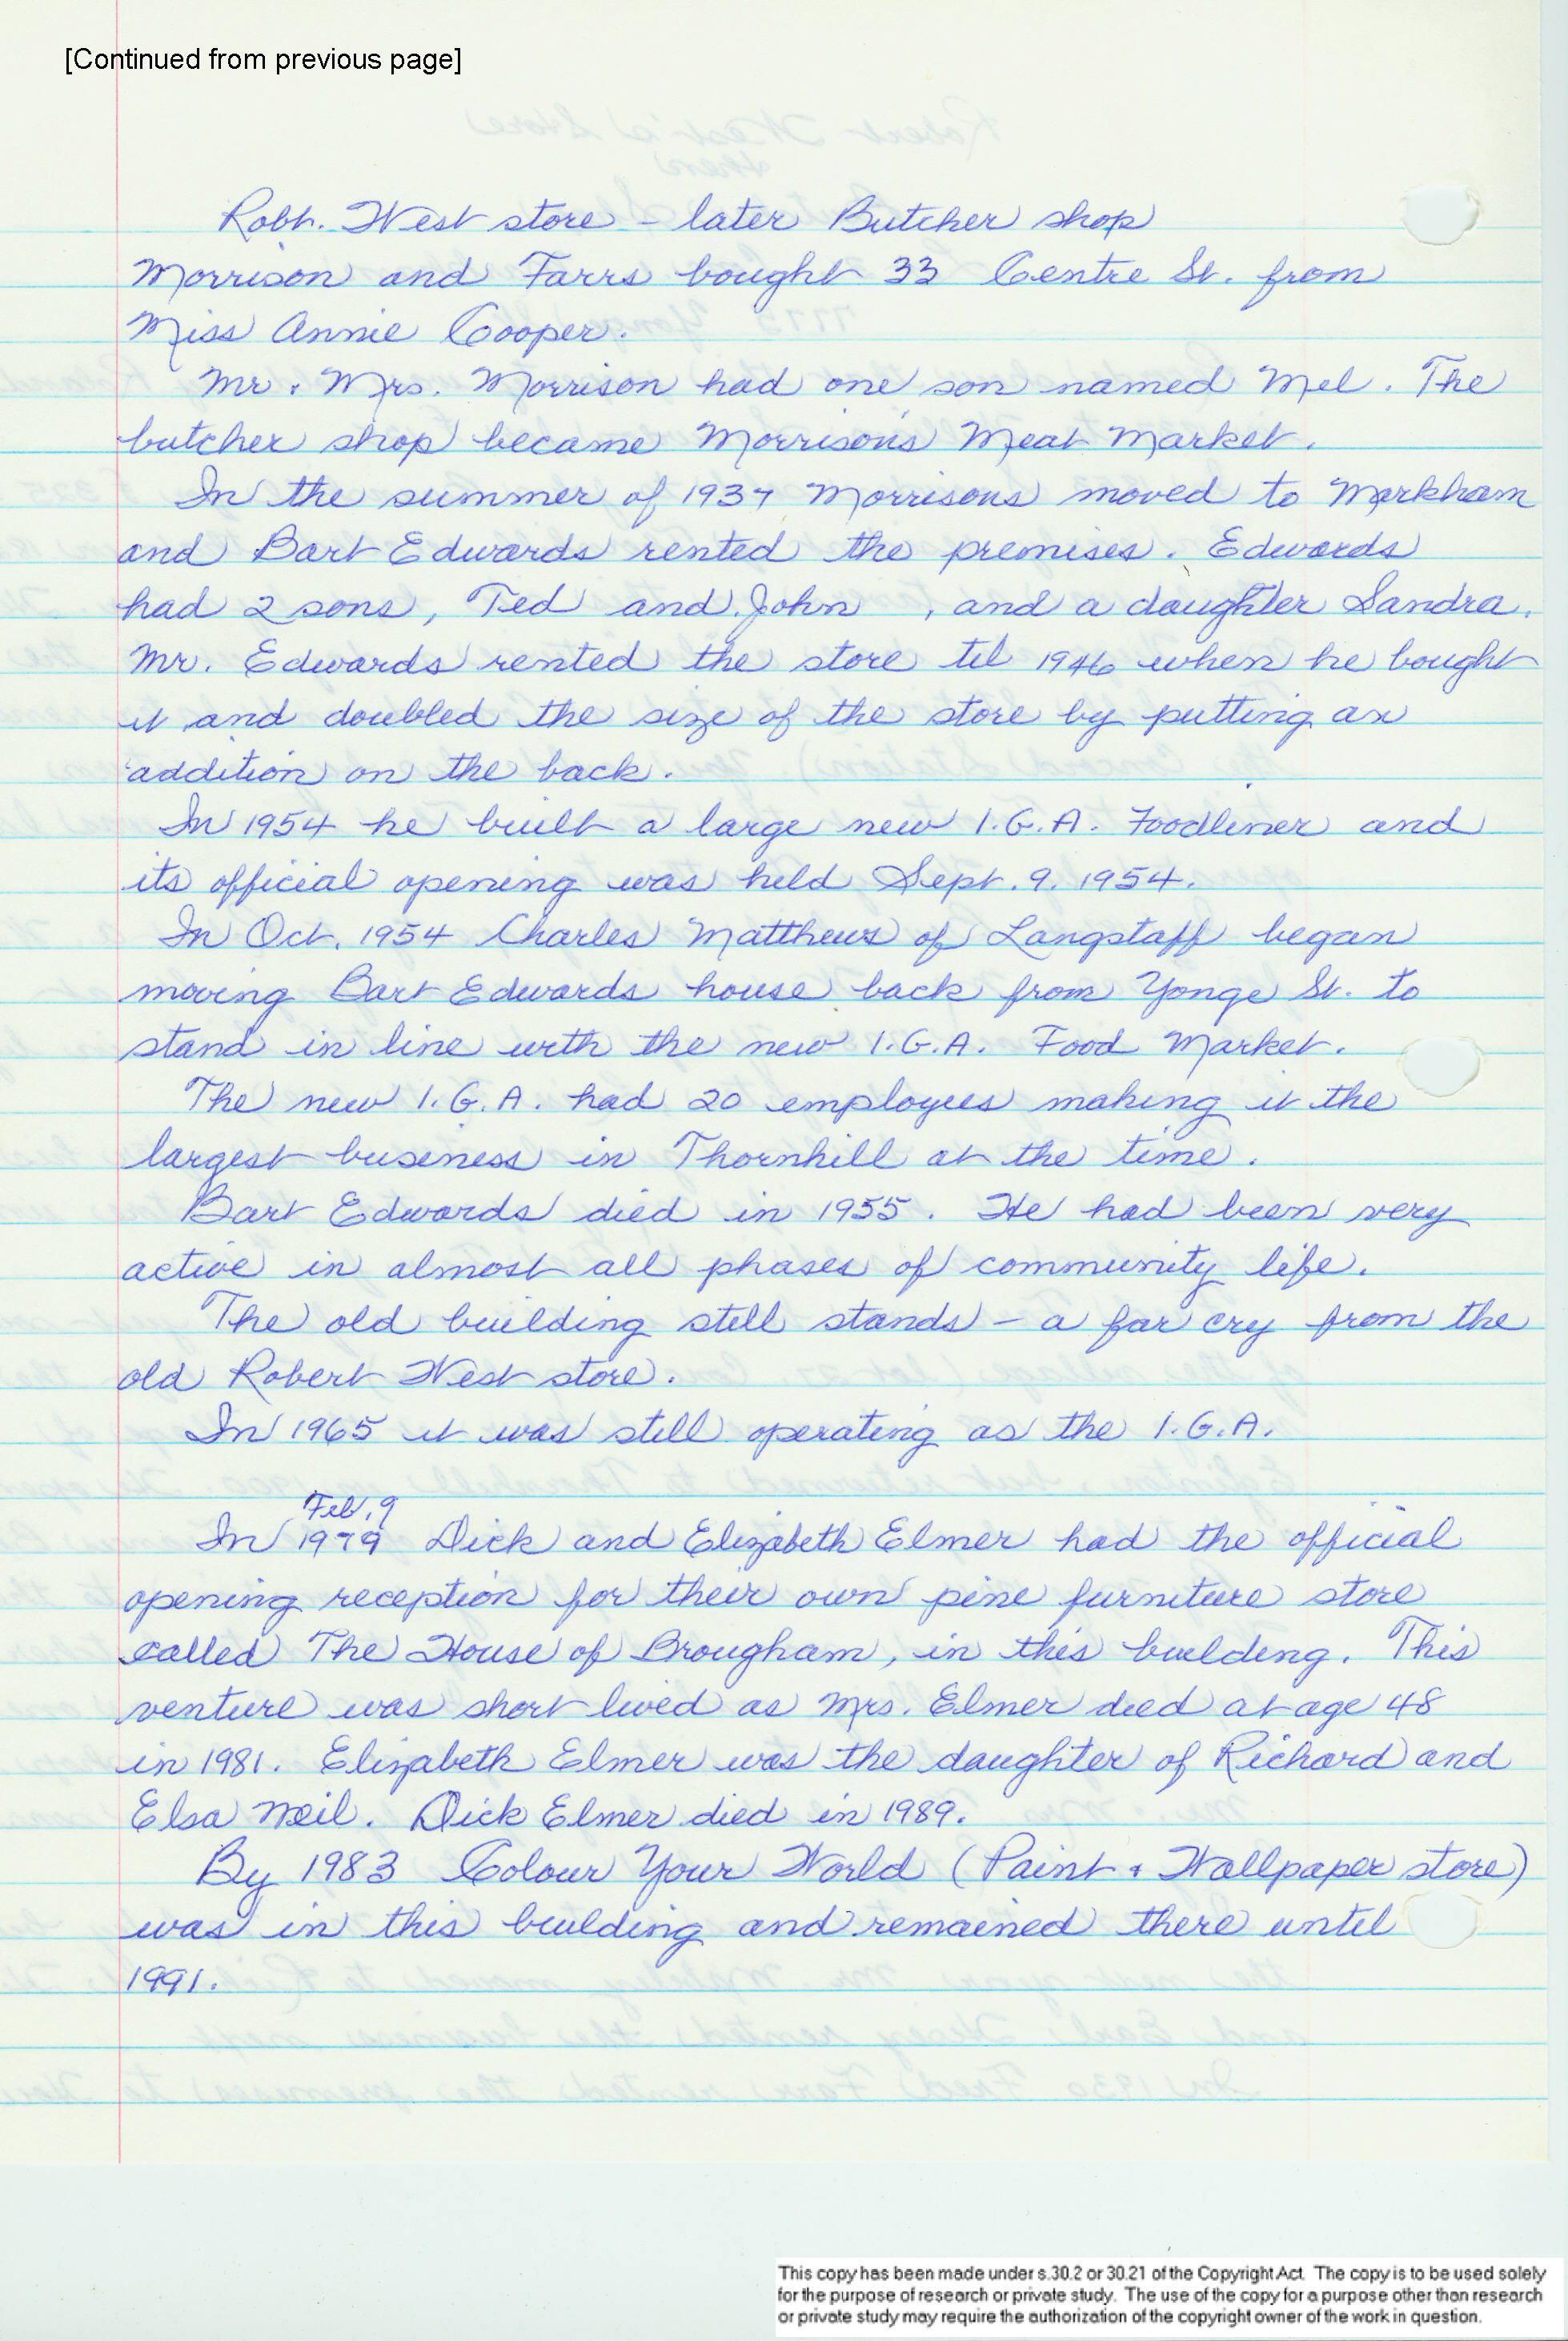 [Continued from previous page]
Robt. West store - later Butcher shop
Morrison and Farrs bought 33 Centre St. from
Miss Annie Cooper.
Mr & Mrs. Morrison had one son named Mel. The
butcher shop became Morrison's Meat Market.
In the summer of 1937 Morrisons moved to Markham
and Bart Edwards rented the premises. Edwards
had 2 sons, Ted and John , and a daughter Sandra.
Mr. Edwards rented the store til 1946 when he bought
it and doubled the size of the store by putting an
addition on the back.
In 1954 he built a large new I.G.A. Foodliner and
its official opening was held Sept. 9. 1954.
In Oct. 1954 Charles Matthews of Langstaff began
moving Bart Edwards house back from Yonge St. to
stand in line with the new I.G.A. Food Market.
The new I.G.A. had 20 employees making it the
largest business in Thornhill at the time.
Bart Edwards died in 1955. He had been very
active in almost all phases of community life.
The old building still stands - a far cry from the
old Robert West store.
In 1965 it was still operating as the I.G.A.
Feb. 9
In 1979 Dick and Elizabeth Elmer had the official
opening reception for their own pine furniture store
called The House of Brougham, in this building. This
venture was short lived as Mrs. Elmer died at age 48
in 1981. Elizabeth Elmer was the daughter of Richard and
Elsa Neil. Dick Elmer died in 1989.
By 1983 Colour Your World (Paint & Wallpaper store)
was in this building and remained there until
1991.
This copy has been made under s.30.2 or 30.21 of the Copyright Act. The copy is to be used solely
for the purpose of research or private study. The use of the copy for a purpose other than research
or private study may require the authorization of the copyright owner of the work in question.